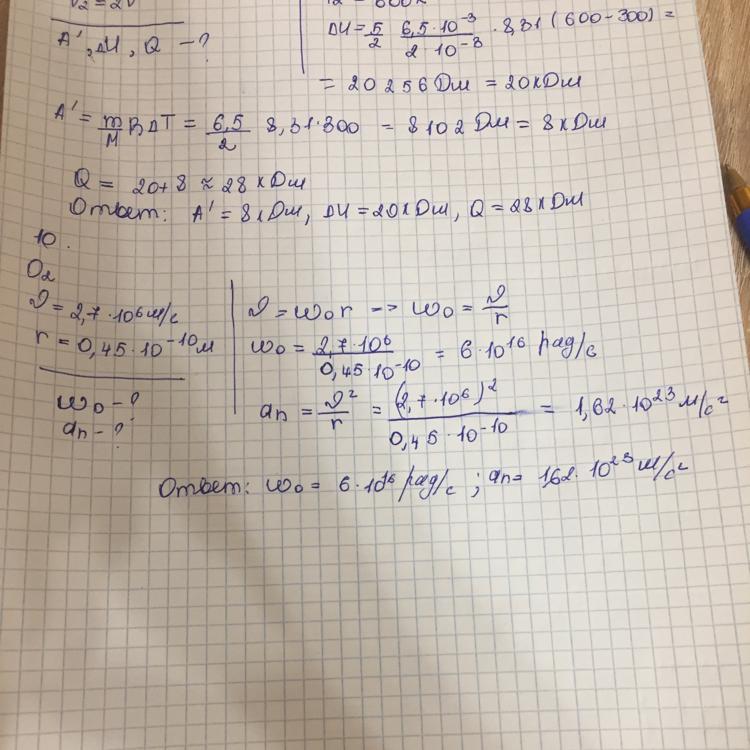 V₂ = 2V
A', ΔU, Q - ?
ΔU = 5/2 6,5·10⁻³/2 10⁻³ · 8,31 (600-300) =
= 20 256 Дж = 20 кДж
A' = m/M RΔT = 6,5/2 8,31·300 = 8102 Дж = 8 кДж
Q = 20+8 ≈ 28 кДж
Ответ: A' = 8 кДж, ΔU = 20 кДж, Q = 28 кДж
10.
O₂
ϑ = 2,7·10⁶ м/с
r = 0,45·10⁻¹⁰ м
ω₀ - ?
aₙ - ?
ϑ = ω₀r -> ω₀ = ϑ/r
ω₀ = 2,7·10⁶/0,45·10⁻¹⁰ = 6·10¹⁶ рад/с
aₙ = ϑ²/r = (2,7·10⁶)²/0,45·10⁻¹⁰ = 1,62·10²³ м/с²
Ответ: ω₀ = 6·10¹⁶ рад/с ; aₙ = 1,62·10²³ м/с²